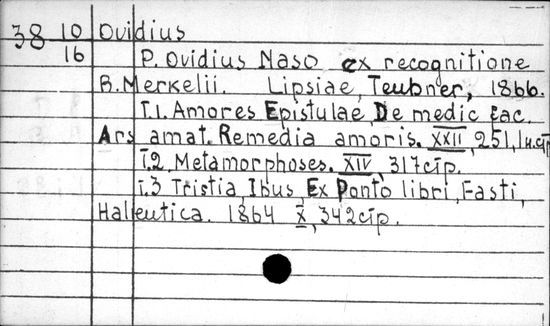 38 10 Ovidius
16 P. Ovidius Naso ex recognitione
R. Merkelii. Lipsiae, Teubner, 1866.
T.1. Amores Epistulae, De medic fac.
Ars amat. Remedia amoris. XXII, 251, 1н.стр
т.2. Metamorphoses. XIV, 317стр.
т.3 Tristia, Ibus, Ex Ponto libri, Fasti,
Halieutica. 1864 X, 342стр.